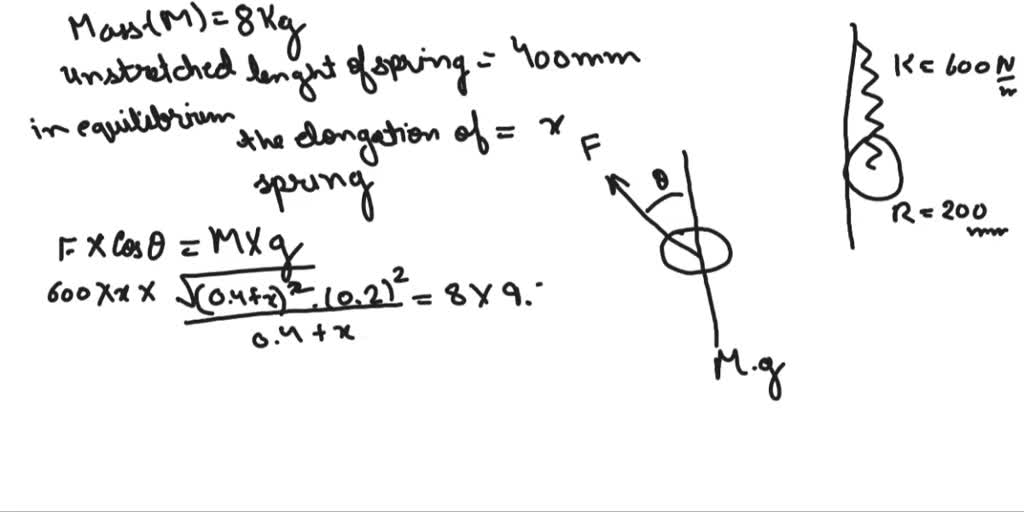 Mass(M) = 8Kg
unstretched lenght of spring = 400mm
in equilibrium the elongation of = x
spring
F × Cosθ = M×g
600×x× √(0.4+x)². (0.2)² = 8×9.
0.4 + x
F
θ
M.g
K = 600 N
m
R = 200
mm